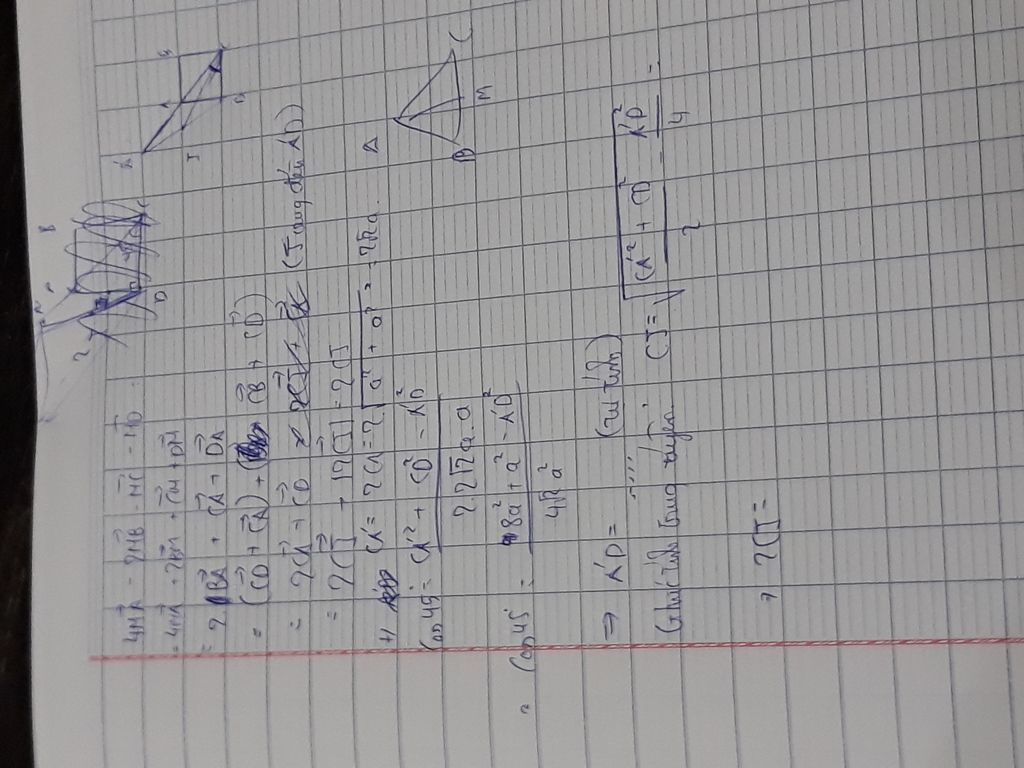 4MA⃗ - 2MB⃗ - MC⃗ - MD⃗
= 4MA⃗ + 2BM⃗ + CM⃗ + DM⃗
= 2BA⃗ + CA⃗ + DA⃗
= (CD⃗ + CA⃗) + (CB⃗ + CD⃗)
= 2CA⃗ + CD⃗ (J trung điểm A'D)
= 2CJ⃗ + |2CJ⃗| = 2CJ
+) CA' = 2CA = 2√(a² + a²) = 2√2a.
Cos45° = (CA'² + CD² - A'D²) / (2.2√2a.a)
= Cos45° = (8a² + a² - A'D²) / (4√2a²)
⇒ A'D = .... (tự tính)
Cthức tính trung tuyến CJ = √((CA'² + CD²)/2 - A'D²/4) =
⇒ 2CJ =
A'
A
B
J
D
Δ
B
M
C
B
D